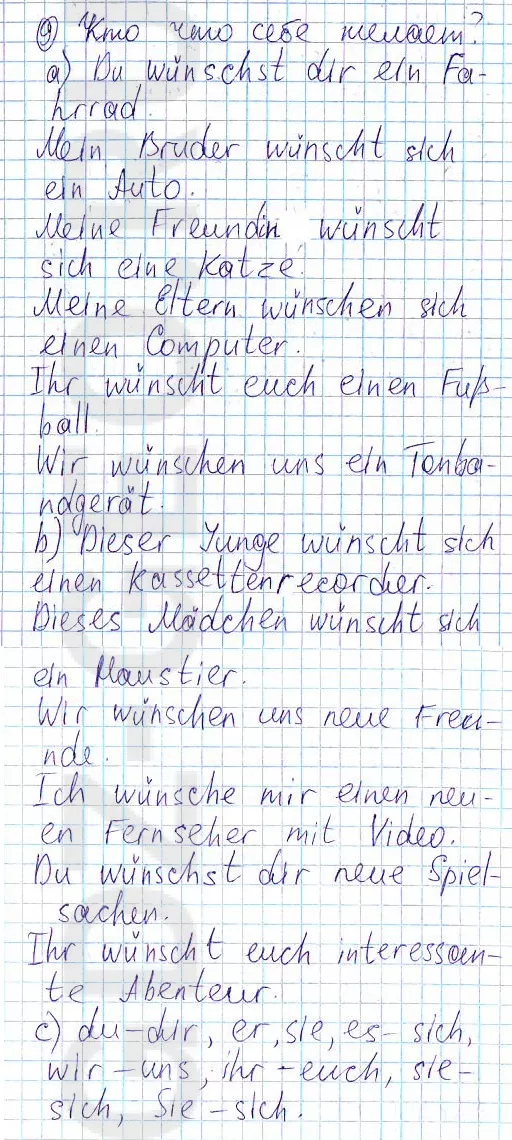 ⑨ Кто что себе желает?
a) Du wünschst dir ein Fa-
hrrad.
Mein Bruder wünscht sich
ein Auto.
Meine Freundin wünscht
sich eine Katze.
Meine Eltern wünschen sich
einen Computer.
Ihr wünscht euch einen Fuß-
ball.
Wir wünschen uns ein Tonba-
ndgerät.
b) Dieser Junge wünscht sich
einen Kassettenrecorder.
Dieses Mädchen wünscht sich
ein Haustier.
Wir wünschen uns neue Freu-
nde.
Ich wünsche mir einen neu-
en Fernseher mit Video.
Du wünschst dir neue Spiel-
sachen.
Ihr wünscht euch interessan-
te Abenteur.
c) du-dir, er, sie, es- sich,
wir-uns, ihr-euch, sie-
sich, Sie-sich.